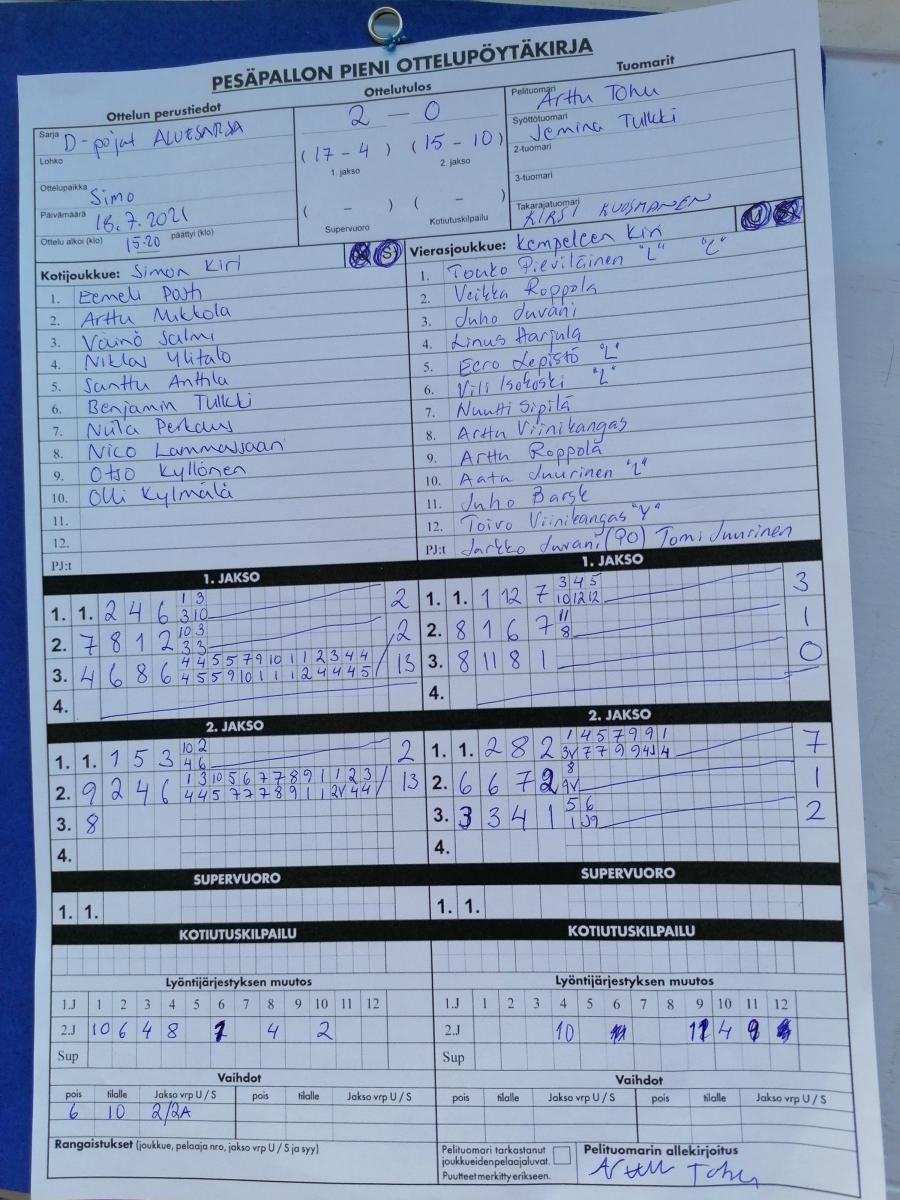 PESÄPALLON PIENI OTTELUPÖYTÄKIRJA
Ottelun perustiedot
Sarja D-pojat ALUESARJA
Lohko
Ottelupaikka Simo
Päivämäärä 18.7.2021
Ottelu alkoi (klo) 15.20 päättyi (klo)
Ottelutulos
2 – 0
(17 – 4) (15 – 10)
1. jakso 2. jakso
( – ) ( – )
Supervuoro Kotiutuskilpailu
Tuomarit
Pelituomari Arttu Tohu
Syöttötuomari Jemina Tulkki
2-tuomari
3-tuomari
Takarajatuomari KIRSI KUOSMANEN
Kotijoukkue: Simon Kiri
1. Eemeli
2. Arttu Mikkola
3. Väinö Salmi
4. Niklas Ylitalo
5. Santtu Anttila
6. Benjamin Tulkki
7. Niila
8. Nico
9. Otso Kyllönen
10. Olli Kylmälä
11.
12.
PJ:t
Vierasjoukkue: Kempeleen Kiri
1. Touko Pieviläinen "L" "C"
2. Veikka Roppola
3. Juho Juvani
4. Linus Harjula
5. Eero Lepistö "L"
6. Vili Isokoski "L"
7. Nuutti Sipilä
8. Arttu Viinikangas
9. Arttu Roppola
10. Aatu Juurinen "L"
11. Juho Barsk
12. Toivo Viinikangas "V"
PJ:t Jarkko Juvani (PO) Tomi Juurinen
1. JAKSO
1. 1. 2 4 6 1 3 2
3 10
2. 7 8 1 2 10 3 2
3 3
3. 4 6 8 6 4 4 5 5 7 9 10 1 1 2 3 4 4 13
4 5 5 9 10 1 1 1 2 4 4 4 5
4.
1. JAKSO
1. 1. 1 12 7 3 4 5 3
10 12 12
2. 8 1 6 7 11 1
8
3. 8 11 8 1 0
4.
2. JAKSO
1. 1. 1 5 3 10 2 2
4 6
2. 9 2 4 6 1 3 10 5 6 7 7 8 9 1 1 2 3 13
4 4 5 7 7 7 8 9 1 1 2V 4 4
3. 8
4.
2. JAKSO
1. 1. 2 8 2 1 4 5 7 9 9 1 7
2. 6 6 7 2 8 1
9V
3. 3 3 4 1 5 6 2
4.
SUPERVUORO
1. 1.
SUPERVUORO
1. 1.
KOTIUTUSKILPAILU
KOTIUTUSKILPAILU
Lyöntijärjestyksen muutos
1.J 1 2 3 4 5 6 7 8 9 10 11 12
2.J 10 6 4 8 1 4 2
Sup
Lyöntijärjestyksen muutos
1.J 1 2 3 4 5 6 7 8 9 10 11 12
2.J 10 11 4 9
Sup
Vaihdot
pois tilalle Jakso vrp U / S pois tilalle Jakso vrp U / S
6 10 2/2A
Vaihdot
pois tilalle Jakso vrp U / S pois tilalle Jakso vrp U / S
Rangaistukset (joukkue, pelaaja nro, jakso vrp U / S ja syy)
Pelituomari tarkastanut
joukkueidenpelaajaluvat.
Puutteet merkitty erikseen.
Pelituomarin allekirjoitus
Arttu Tohu